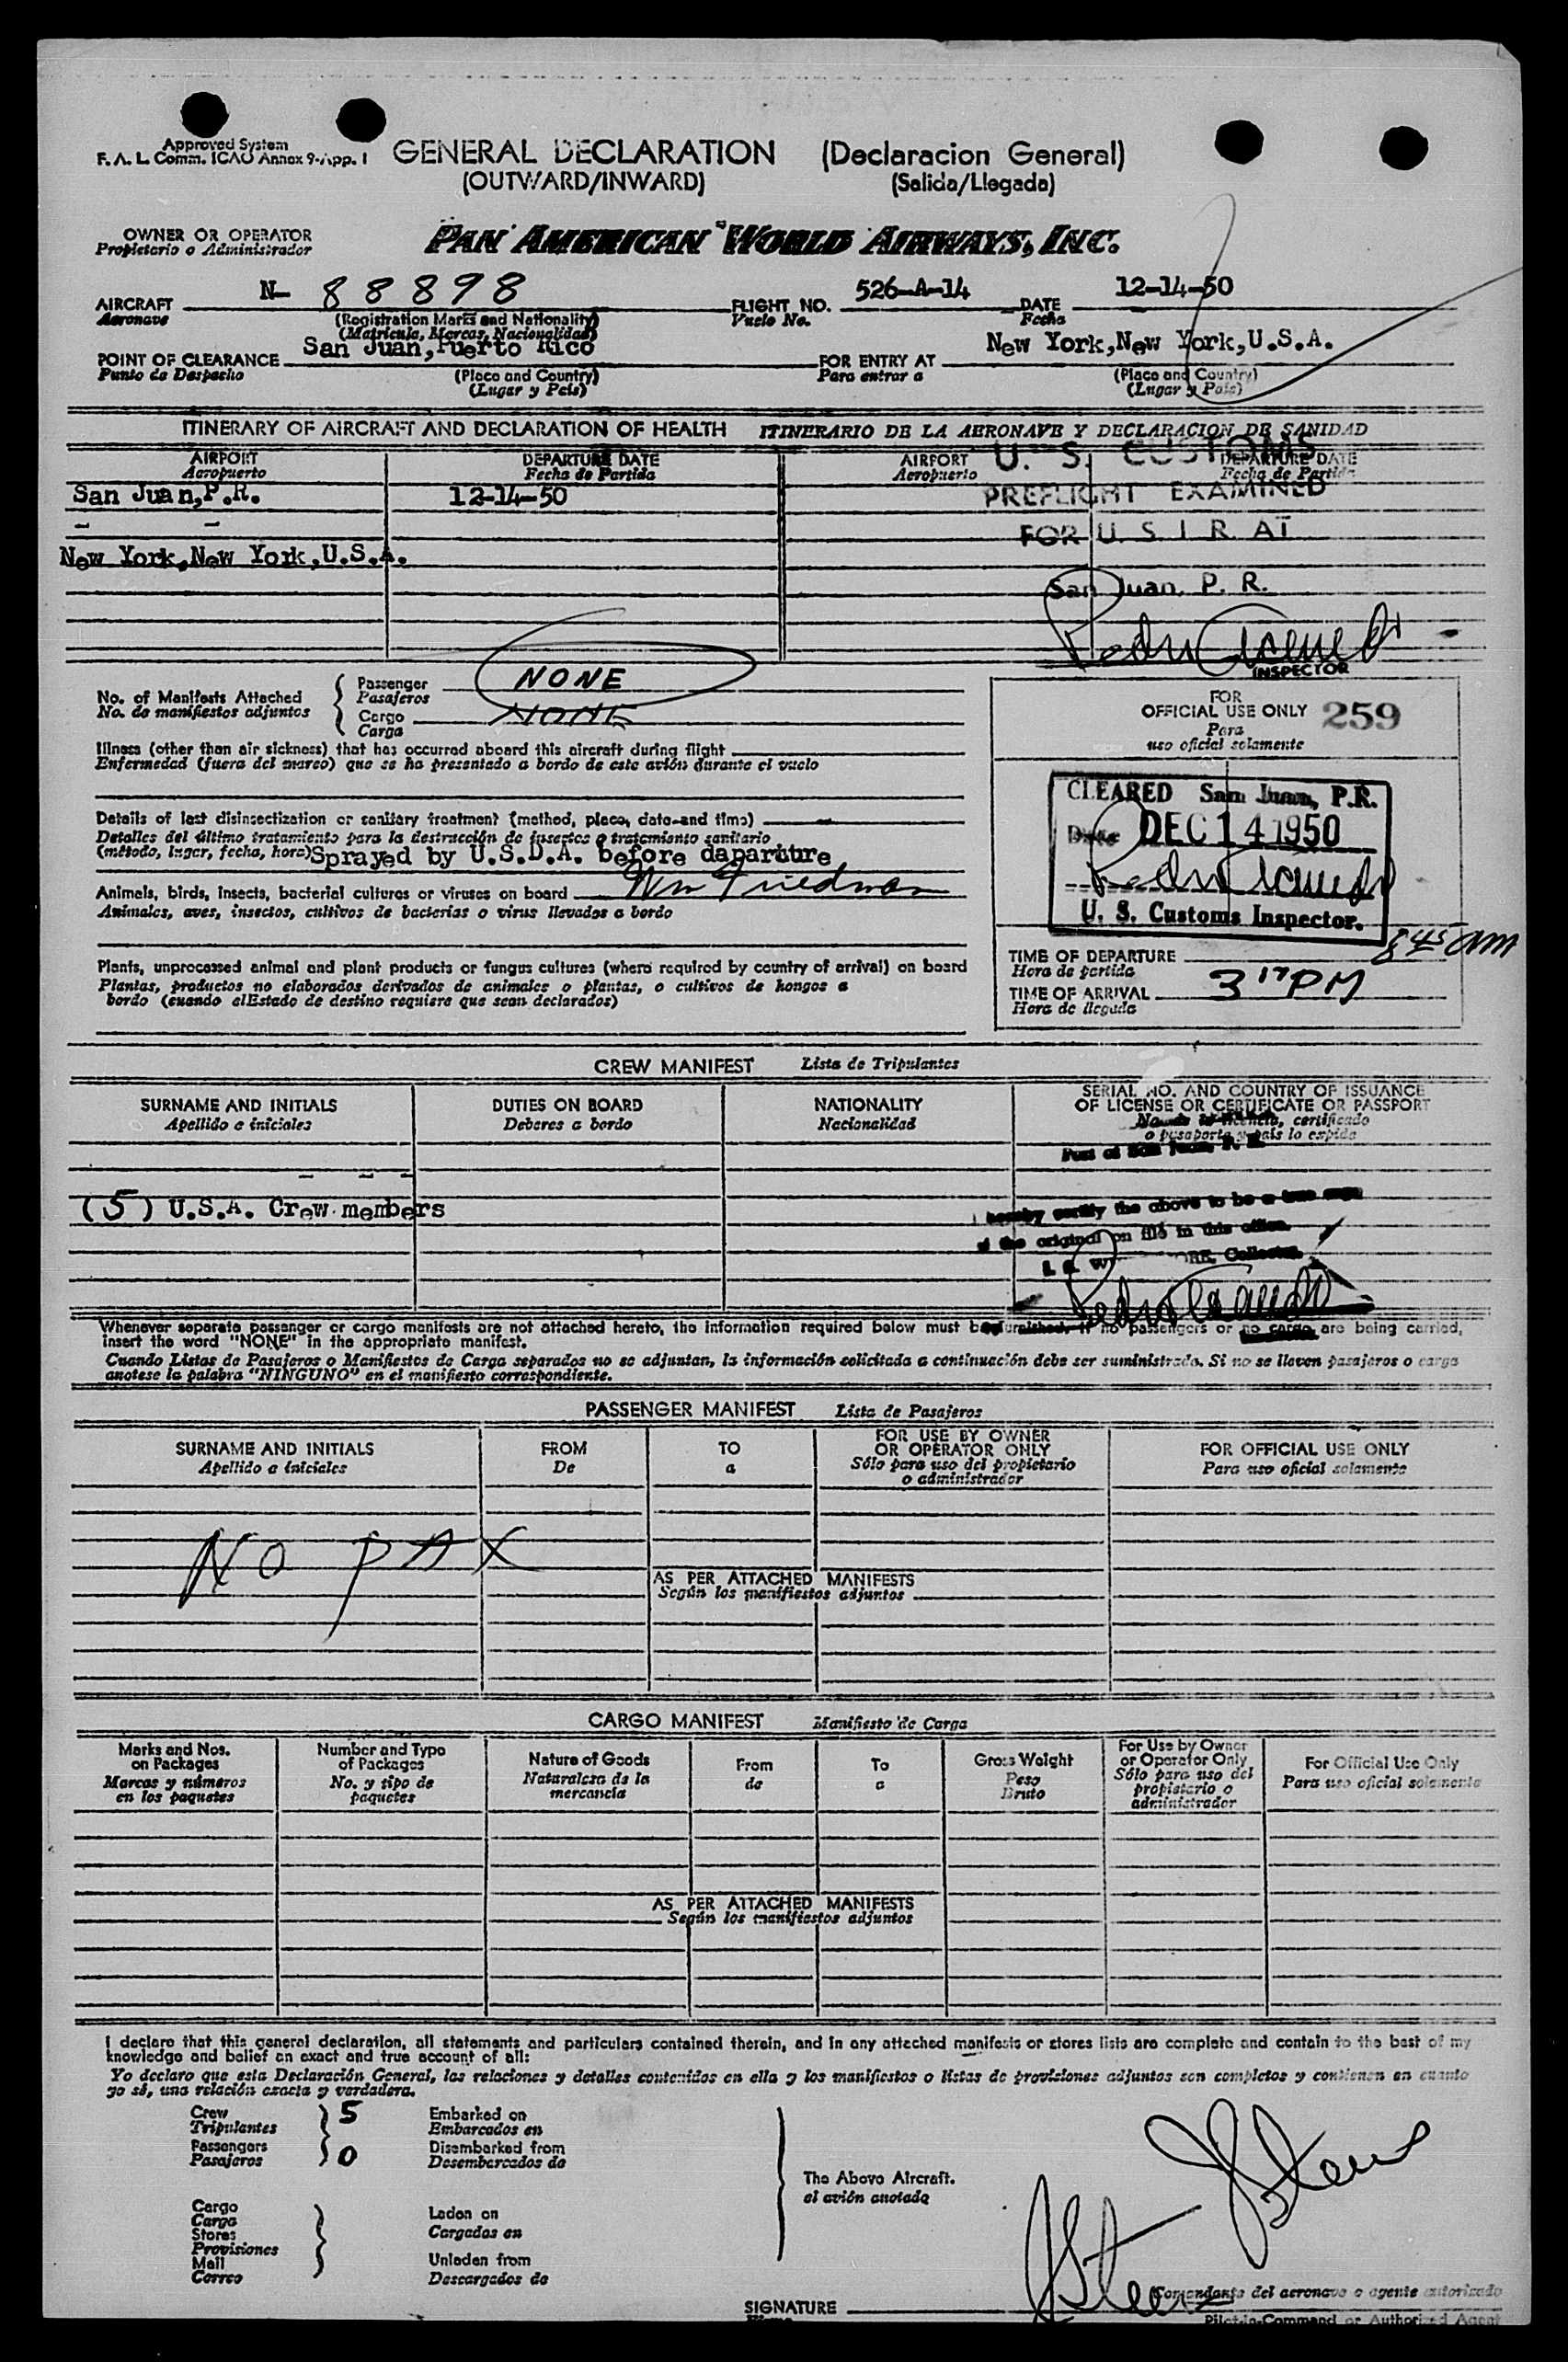 Approved System
F. A. L. Comm. ICAO Annex 9-App. I
GENERAL DECLARATION (Declaracion General)
(OUTWARD/INWARD) (Salida/Llegada)
OWNER OR OPERATOR
Propietario o Administrador
PAN AMERICAN WORLD AIRWAYS, INC.
AIRCRAFT N- 88898 FLIGHT NO. 526-A-14 DATE 12-14-50
Aeronave (Registration Marks and Nationality) Vuelo No. Fecha
(Matricula, Marcas, Nacionalidad)
POINT OF CLEARANCE San Juan, Puerto Rico FOR ENTRY AT New York, New York, U.S.A.
Punto de Despacho (Place and Country) Para entrar a (Place and Country)
(Lugar y Pais) (Lugar y Pais)
ITINERARY OF AIRCRAFT AND DECLARATION OF HEALTH ITINERARIO DE LA AERONAVE Y DECLARACION DE SANIDAD
AIRPORT DEPARTURE DATE AIRPORT DEPARTURE DATE
Aeropuerto Fecha de Partida Aeropuerto Fecha de Partida
San Juan, P.R. 12-14-50
- -
New York, New York, U.S.A.
U. S. CUSTOMS
PREFLIGHT EXAMINED
FOR U. S. I. R. AT
San Juan, P. R.
INSPECTOR
No. of Manifests Attached
No. de manifiestos adjuntos
Passenger NONE
Pasajeros
Cargo NONE
Carga
FOR
OFFICIAL USE ONLY 259
Para
uso oficial solamente
Illness (other than air sickness) that has occurred aboard this aircraft during flight
Enfermedad (fuera del mareo) que se ha presentado a bordo de este avión durante el vuelo
Details of last disinsectization or sanitary treatment (method, place, date and time)
Detalles del último tratamiento para la destrucción de insectos o tratamiento sanitario
(método, lugar, fecha, hora) Sprayed by U.S.D.A. before daparture
Wm Friedman
Animals, birds, insects, bacterial cultures or viruses on board
Animales, aves, insectos, cultivos de bacterias o virus llevados a bordo
CLEARED San Juan, P.R.
Date DEC 14 1950
U. S. Customs Inspector.
Plants, unprocessed animal and plant products or fungus cultures (where required by country of arrival) on board
Plantas, productos no elaborados derivados de animales o plantas, o cultivos de hongos a
bordo (cuando elEstado de destino requiere que sean declarados)
TIME OF DEPARTURE 8 45 am
Hora de partida
TIME OF ARRIVAL 3 17 PM
Hora de llegada
CREW MANIFEST Lista de Tripulantes
SURNAME AND INITIALS DUTIES ON BOARD NATIONALITY SERIAL NO. AND COUNTRY OF ISSUANCE
OF LICENSE OR CERTIFICATE OR PASSPORT
Apellido e iniciales Deberes a bordo Nacionalidad
licencia, certificado
o pasaporte y pais lo expide
Port of San Juan, P. R.
- - -
(5) U.S.A. Crew members
I hereby certify the above to be a true copy
of the original on file in this office.
Collector.
Whenever separate passenger or cargo manifests are not attached hereto, the information required below must be furnished. If no passengers or no cargo are being carried,
insert the word "NONE" in the appropriate manifest.
Cuando Listas de Pasajeros o Manifiestos de Carga separados no se adjuntan, la información solicitada a continuación debe ser suministrada. Si no se llevan pasajeros o carga
anotese la palabra "NINGUNO" en el manifiesto correspondiente.
PASSENGER MANIFEST Lista de Pasajeros
SURNAME AND INITIALS FROM TO FOR USE BY OWNER
OR OPERATOR ONLY FOR OFFICIAL USE ONLY
Apellido e iniciales De a Sólo para uso del propietario
o administrador Para uso oficial solamente
NO PAX
AS PER ATTACHED MANIFESTS
Según los manifiestos adjuntos
CARGO MANIFEST Manifiesto de Carga
Marks and Nos.
on Packages
Marcas y números
en los paquetes
Number and Type
of Packages
No. y tipo de
paquetes
Nature of Goods
Naturaleza de la
mercancia
From
de
To
a
Gross Weight
Peso
Bruto
For Use by Owner
or Operator Only
Sólo para uso del
propietario o
administrador
For Official Use Only
Para uso oficial solamente
AS PER ATTACHED MANIFESTS
Según los manifiestos adjuntos
I declare that this general declaration, all statements and particulars contained therein, and in any attached manifests or stores lists are complete and contain to the best of my
knowledge and belief an exact and true account of all:
Yo declaro que esta Declaración General, las relaciones y detalles contenidos en ella y los manifiestos o listas de provisiones adjuntos son completos y contienen en cuanto
yo sé, una relación exacta y verdadera.
Crew 5 Embarked on
Tripulantes Embarcados en
Passengers 0 Disembarked from
Pasajeros Desembarcados de
The Above Aircraft.
el avión anotado
Cargo
Carga Laden on
Stores Cargados en
Provisiones
Mail Unladen from
Correo Descargados de
(Comandante del aeronave o agente autorizado
SIGNATURE
Pilot-in-Command or Authorized Agent